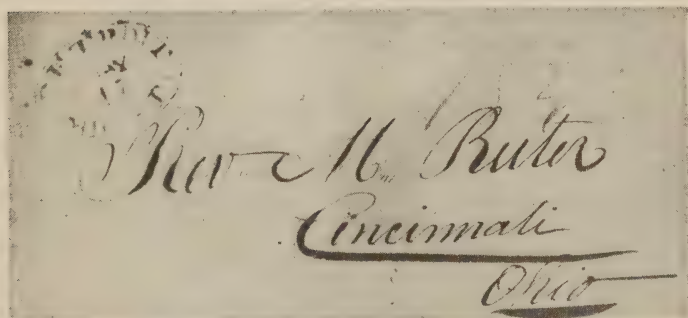 Rev M. Ruter
Cincinnati
Ohio